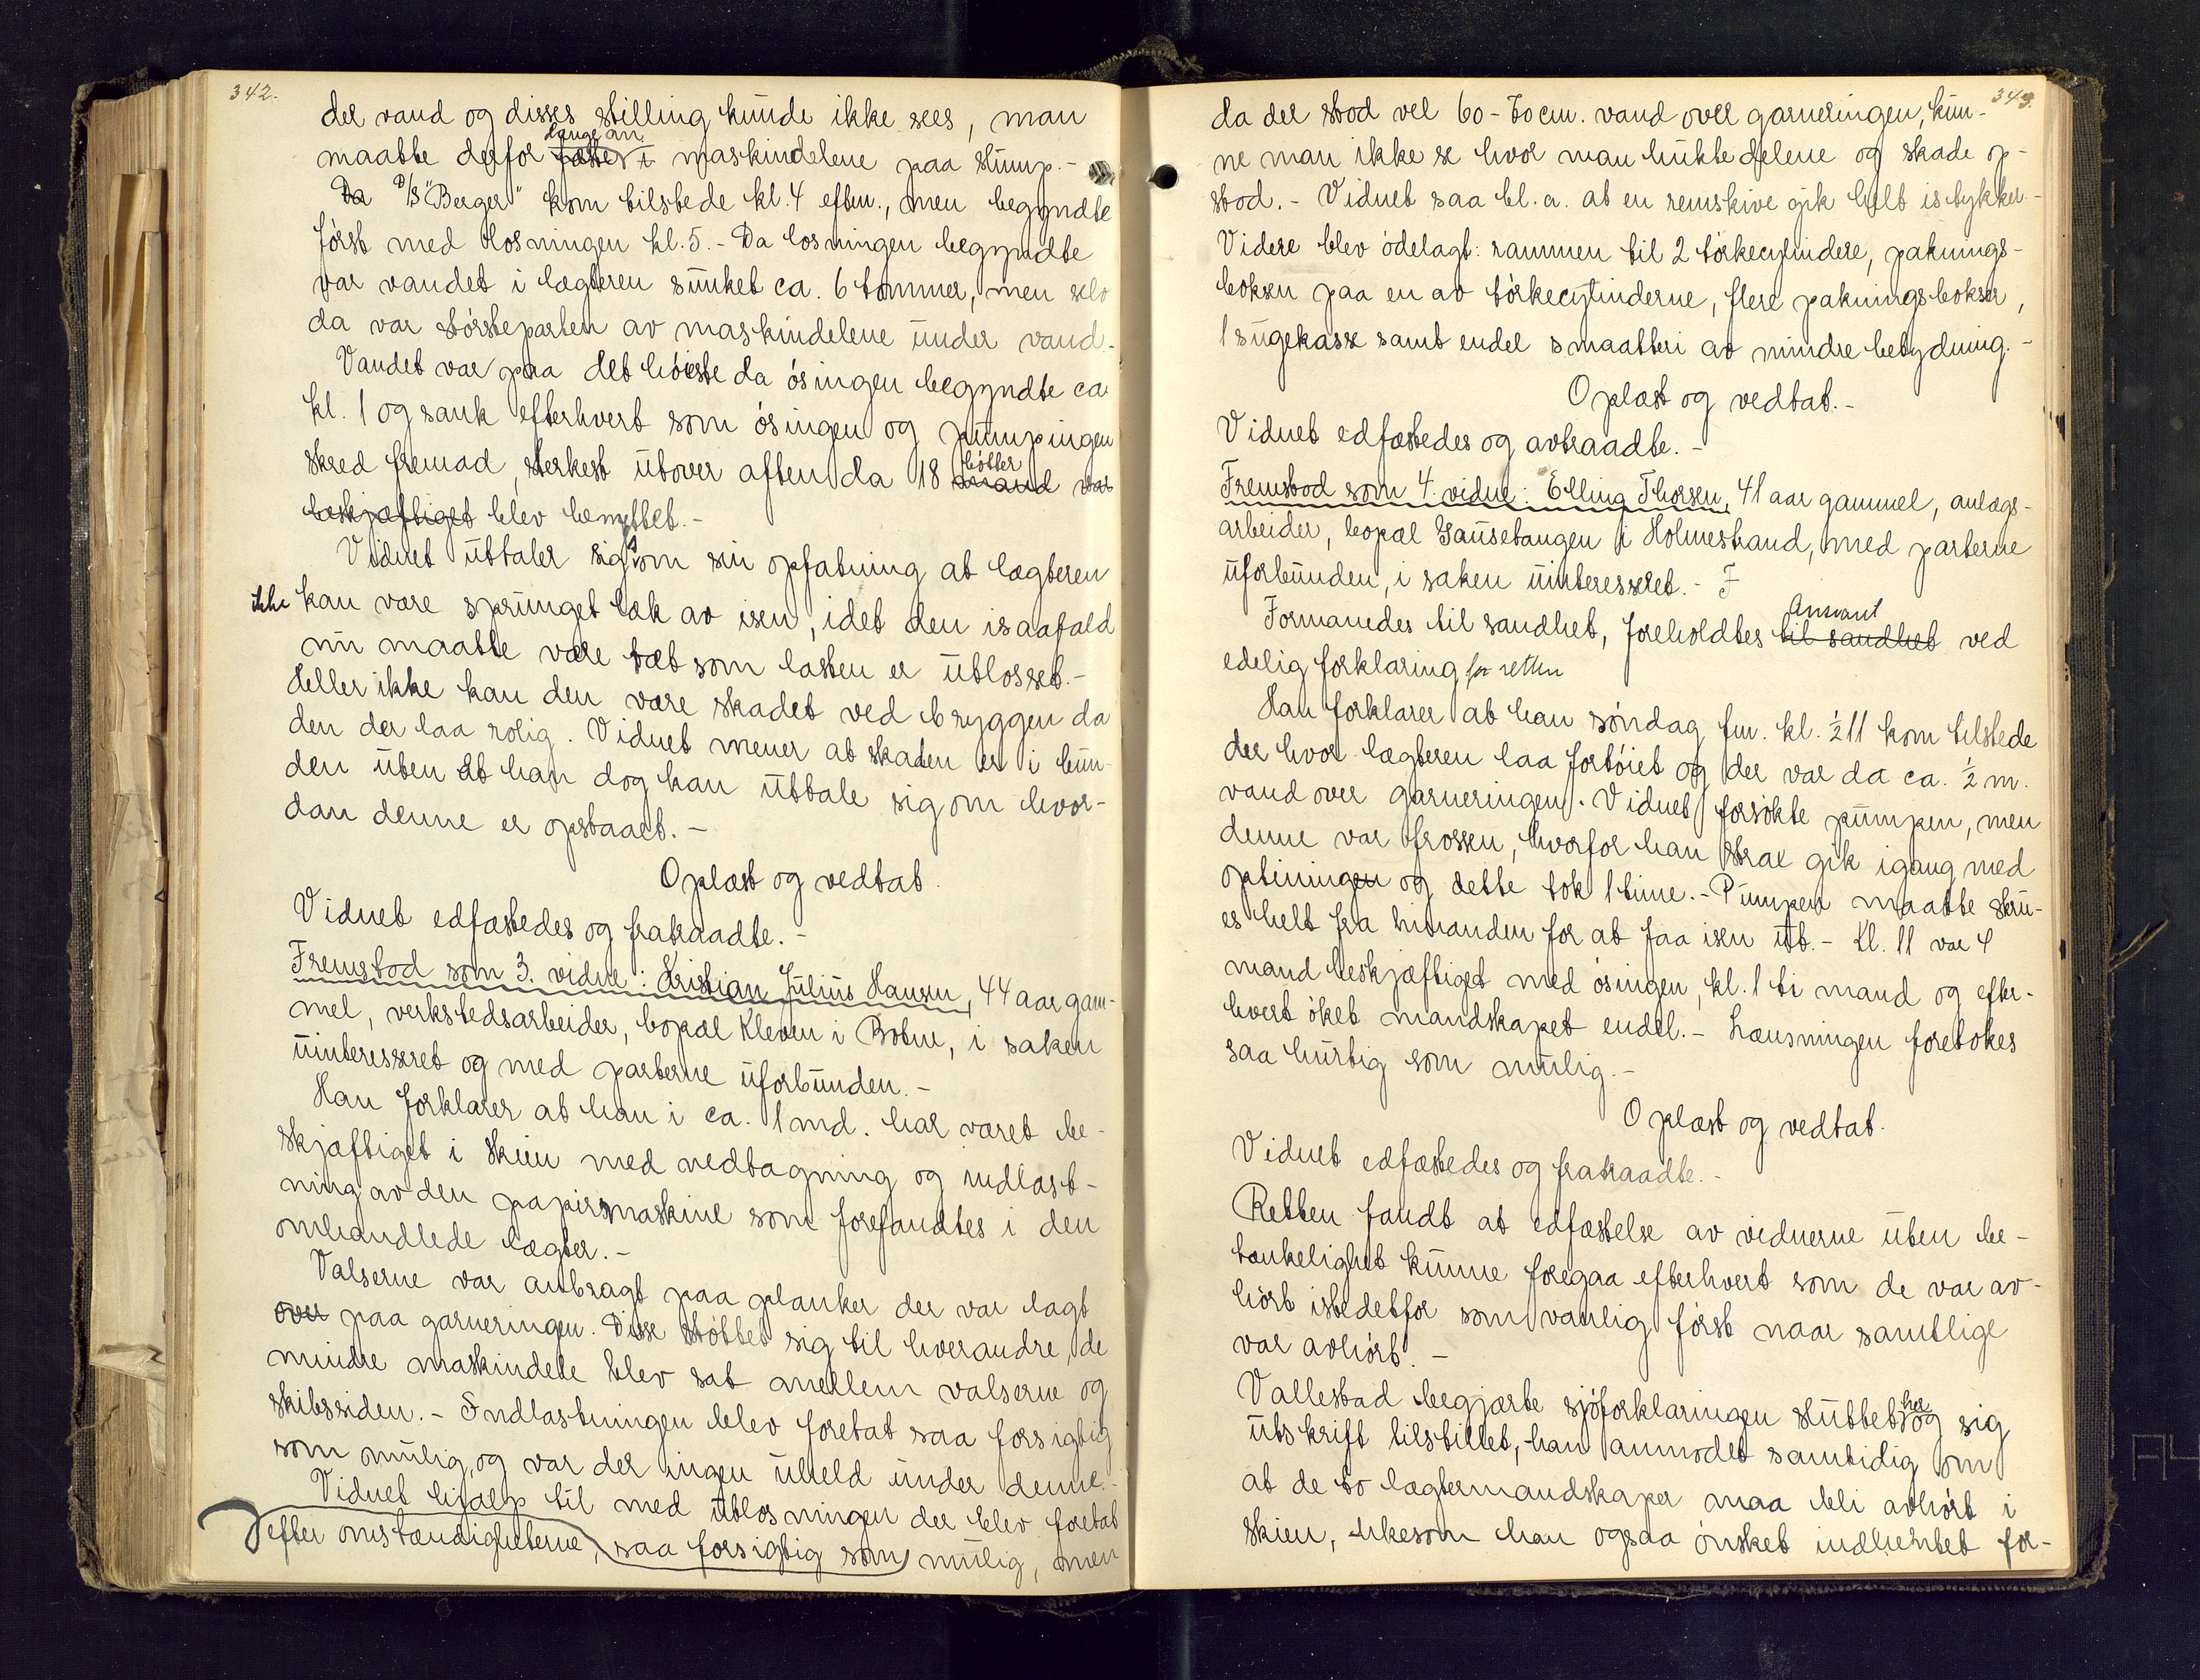 342.
der vand og disses stilling kunde ikke sees, man
lange an
maatte derfor fatte i maskindelene paa slump.-
Da D/S "Berger" kom tilstede kl. 4 eftm., men begyndte
först med losningen kl. 5.- Da losningen begyndte
var vandet i lægteren sunket ca. 6 tommer, men selv
da var störsteparten av maskindelene under vand.-
Vandet var paa det höieste da ösingen begyndte ca
kl. 1 og sank efterhvert som ösingen og pumpingen
bötter
skred fremad, sterkest utover aften da 18 mand var
beskjæftiget blev benyttet.-
Vidnet uttaler sig som sin opfatning at lægteren
ikke kan være sprunget læk av isen, idet den isaafald
nu maatte være tæt som lasten er utlosset.-
Heller ikke kan den være skadet ved bryggen da
den der laa rolig. Vidnet mener at skaden er i bun-
den uten at han dog kan uttale sig om hvor-
dan denne er opstaaet.-
Oplæst og vedtat.
Vidnet edfæstedes og fratraadte.-
Fremstod som 3. vidne: Kristian Julius Hansen, 44 aar gam-
mel, verkstedsarbeider, bopæl Kleven i Botne, i saken
uinteresseret og med parterne uforbunden.-
Han forklarer at han i ca. 1 md. har været be-
skjæftiget i Skien med nedtagning og indlast-
ning av den papirsmaskine som forefandtes i den
omhandlede lægter.-
Valserne var anbragt paa planker der var lagt
over paa garneringen. Disse støttet sig til hverandre, de
mindre maskindele blev sat mellem valserne og
skibssiden.- Indlastningen blev foretat saa forsigtig
som mulig, og var der ingen uheld under denne.-
Vidnet hjalp til med utlosningen der blev foretat
efter omstændigheterne, saa forsigtig som mulig, men
343.
da der stod vel 60-70 cm. vand over garneringen, kun-
ne man ikke se hvor man hukte delene og skade op-
stod.- Vidnet saa bl.a. at en remskive gik helt istykker.-
Videre blev ödelagt: rammen til 2 törkecylindere, paknings-
boksen paa en av törkecylinderne, flere pakningsbokser,
1 sugekasse samt endel smaatteri av mindre betydning.-
Oplæst og vedtat.-
Vidnet edfæstedes og avtraadte.-
Fremstod som 4. vidne: Elling Thorsen, 41 aar gammel, anlægs-
arbeider, bopæl Gausetangen i Holmestrand, med parterne
uforbunden, i saken uinteresseret.- F
Ansvaret
Formanedes til sandhet, foreholdtes til sandhet ved
edelig forklaring for retten
Han forklarer at han söndag fm. kl. ½11 kom tilstede
der hvor lægteren laa fortöiet og der var da ca. ½ m.
vand over garneringen. Vidnet forsökte pumpen, men
denne var frossen, hvorfor han strax gik igang med
optiningen og dette tok 1 time.- Pumpen maatte skru-
es helt fra hinanden for at faa isen ut.- Kl. 11 var 4
mand beskjæftiget med ösingen, kl. 1 ti mand og efter-
hvert öket mandskapet endel.- Lænsningen foretokes
saa hurtig som mulig.-
Oplæst og vedtat.
Vidnet edfæstedes og fratraadte.-
Retten fandt at edfæstelse av vidnerne uten be-
tænkelighet kunne foregaa efterhvert som de var av-
hört istedetfor som vanlig först naar samtlige
var avhört.-
her
Vallestad begjærte sjöforklaringen sluttet og sig
utskrift tilstillet, han anmodet samtidig om
at de to lægtermandskaper maa bli avhört i
Skien, likesom han ogsaa önsket indhentet for-